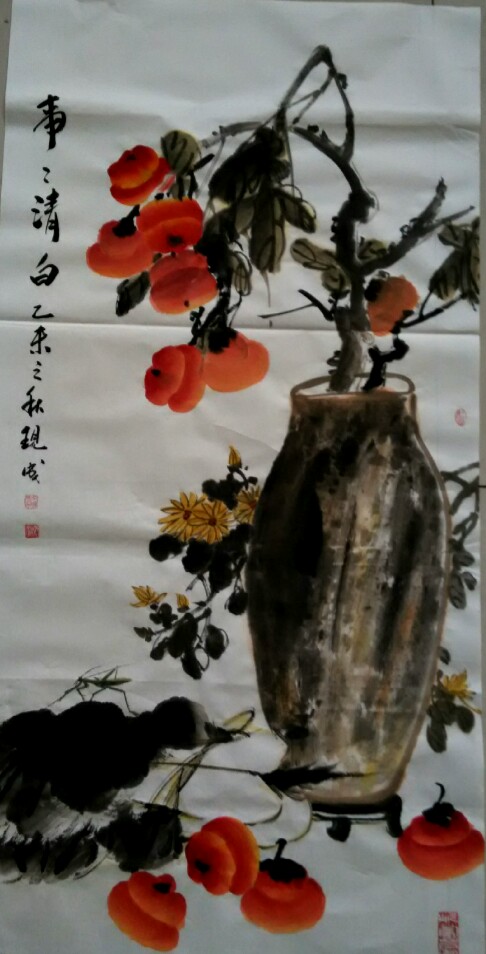 事〻清白乙未之秋現成